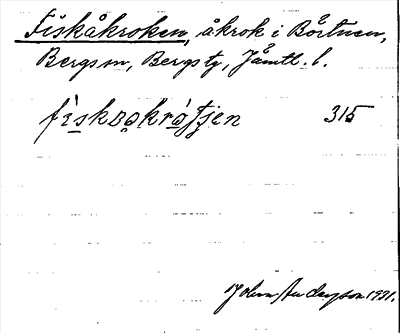 Fiskåkroken, åkrok i Börtnen,
Bergs sn, Bergs tg, Jämtl. l.
fiskɷkrótjen 315
John Andersson 1931.